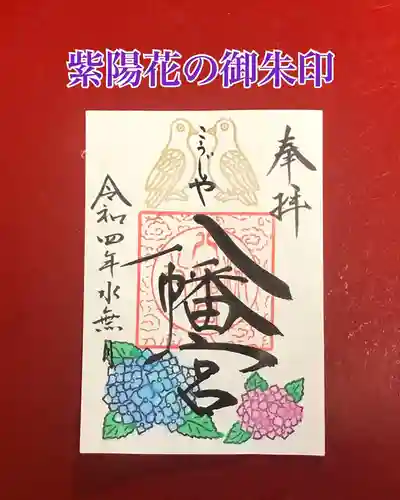 紫陽花の御朱印
奉拝
こうじや
八幡宮
令和四年水無月